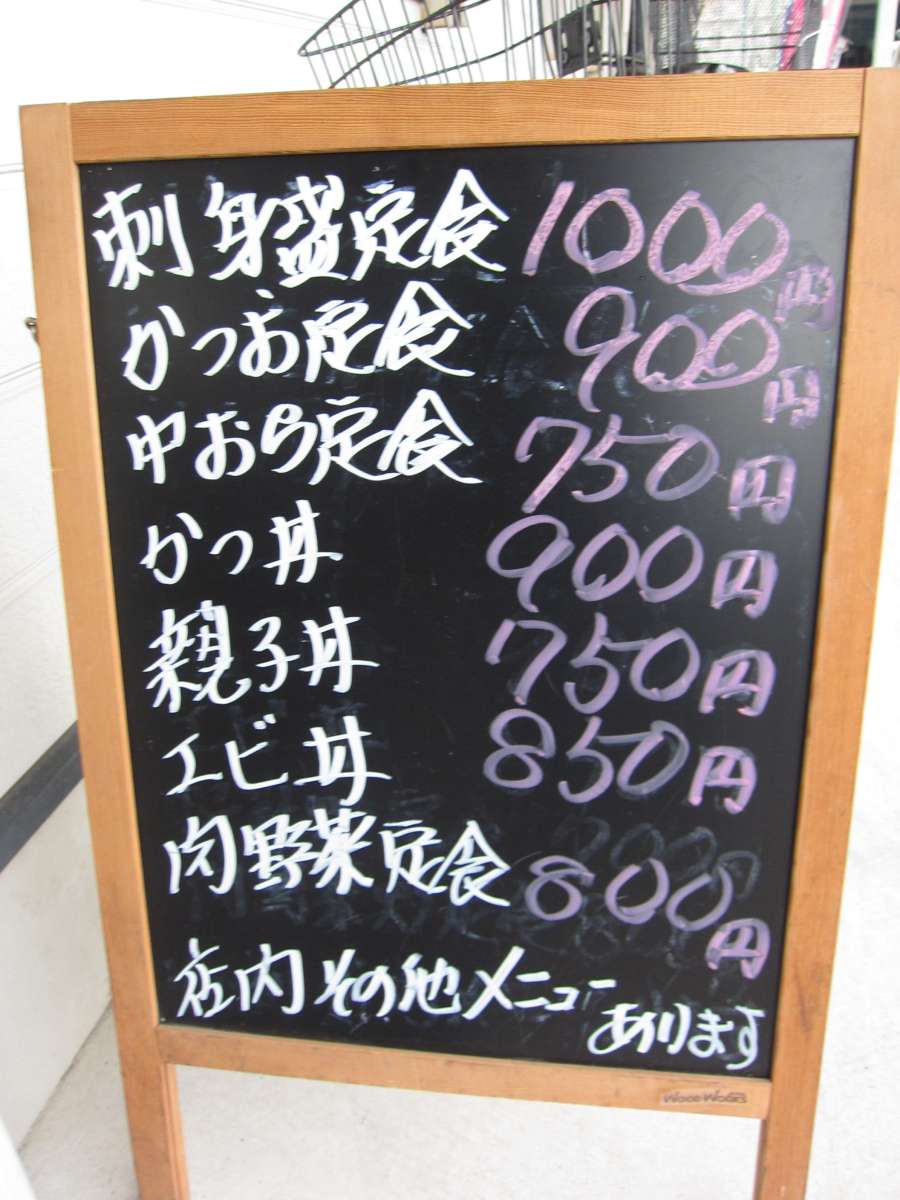 刺身盛定食 1000円
かつお定食 900円
中おち定食 750円
かつ丼 900円
親子丼 750円
エビ丼 850円
肉野菜定食 800円
店内その他メニュー
あります